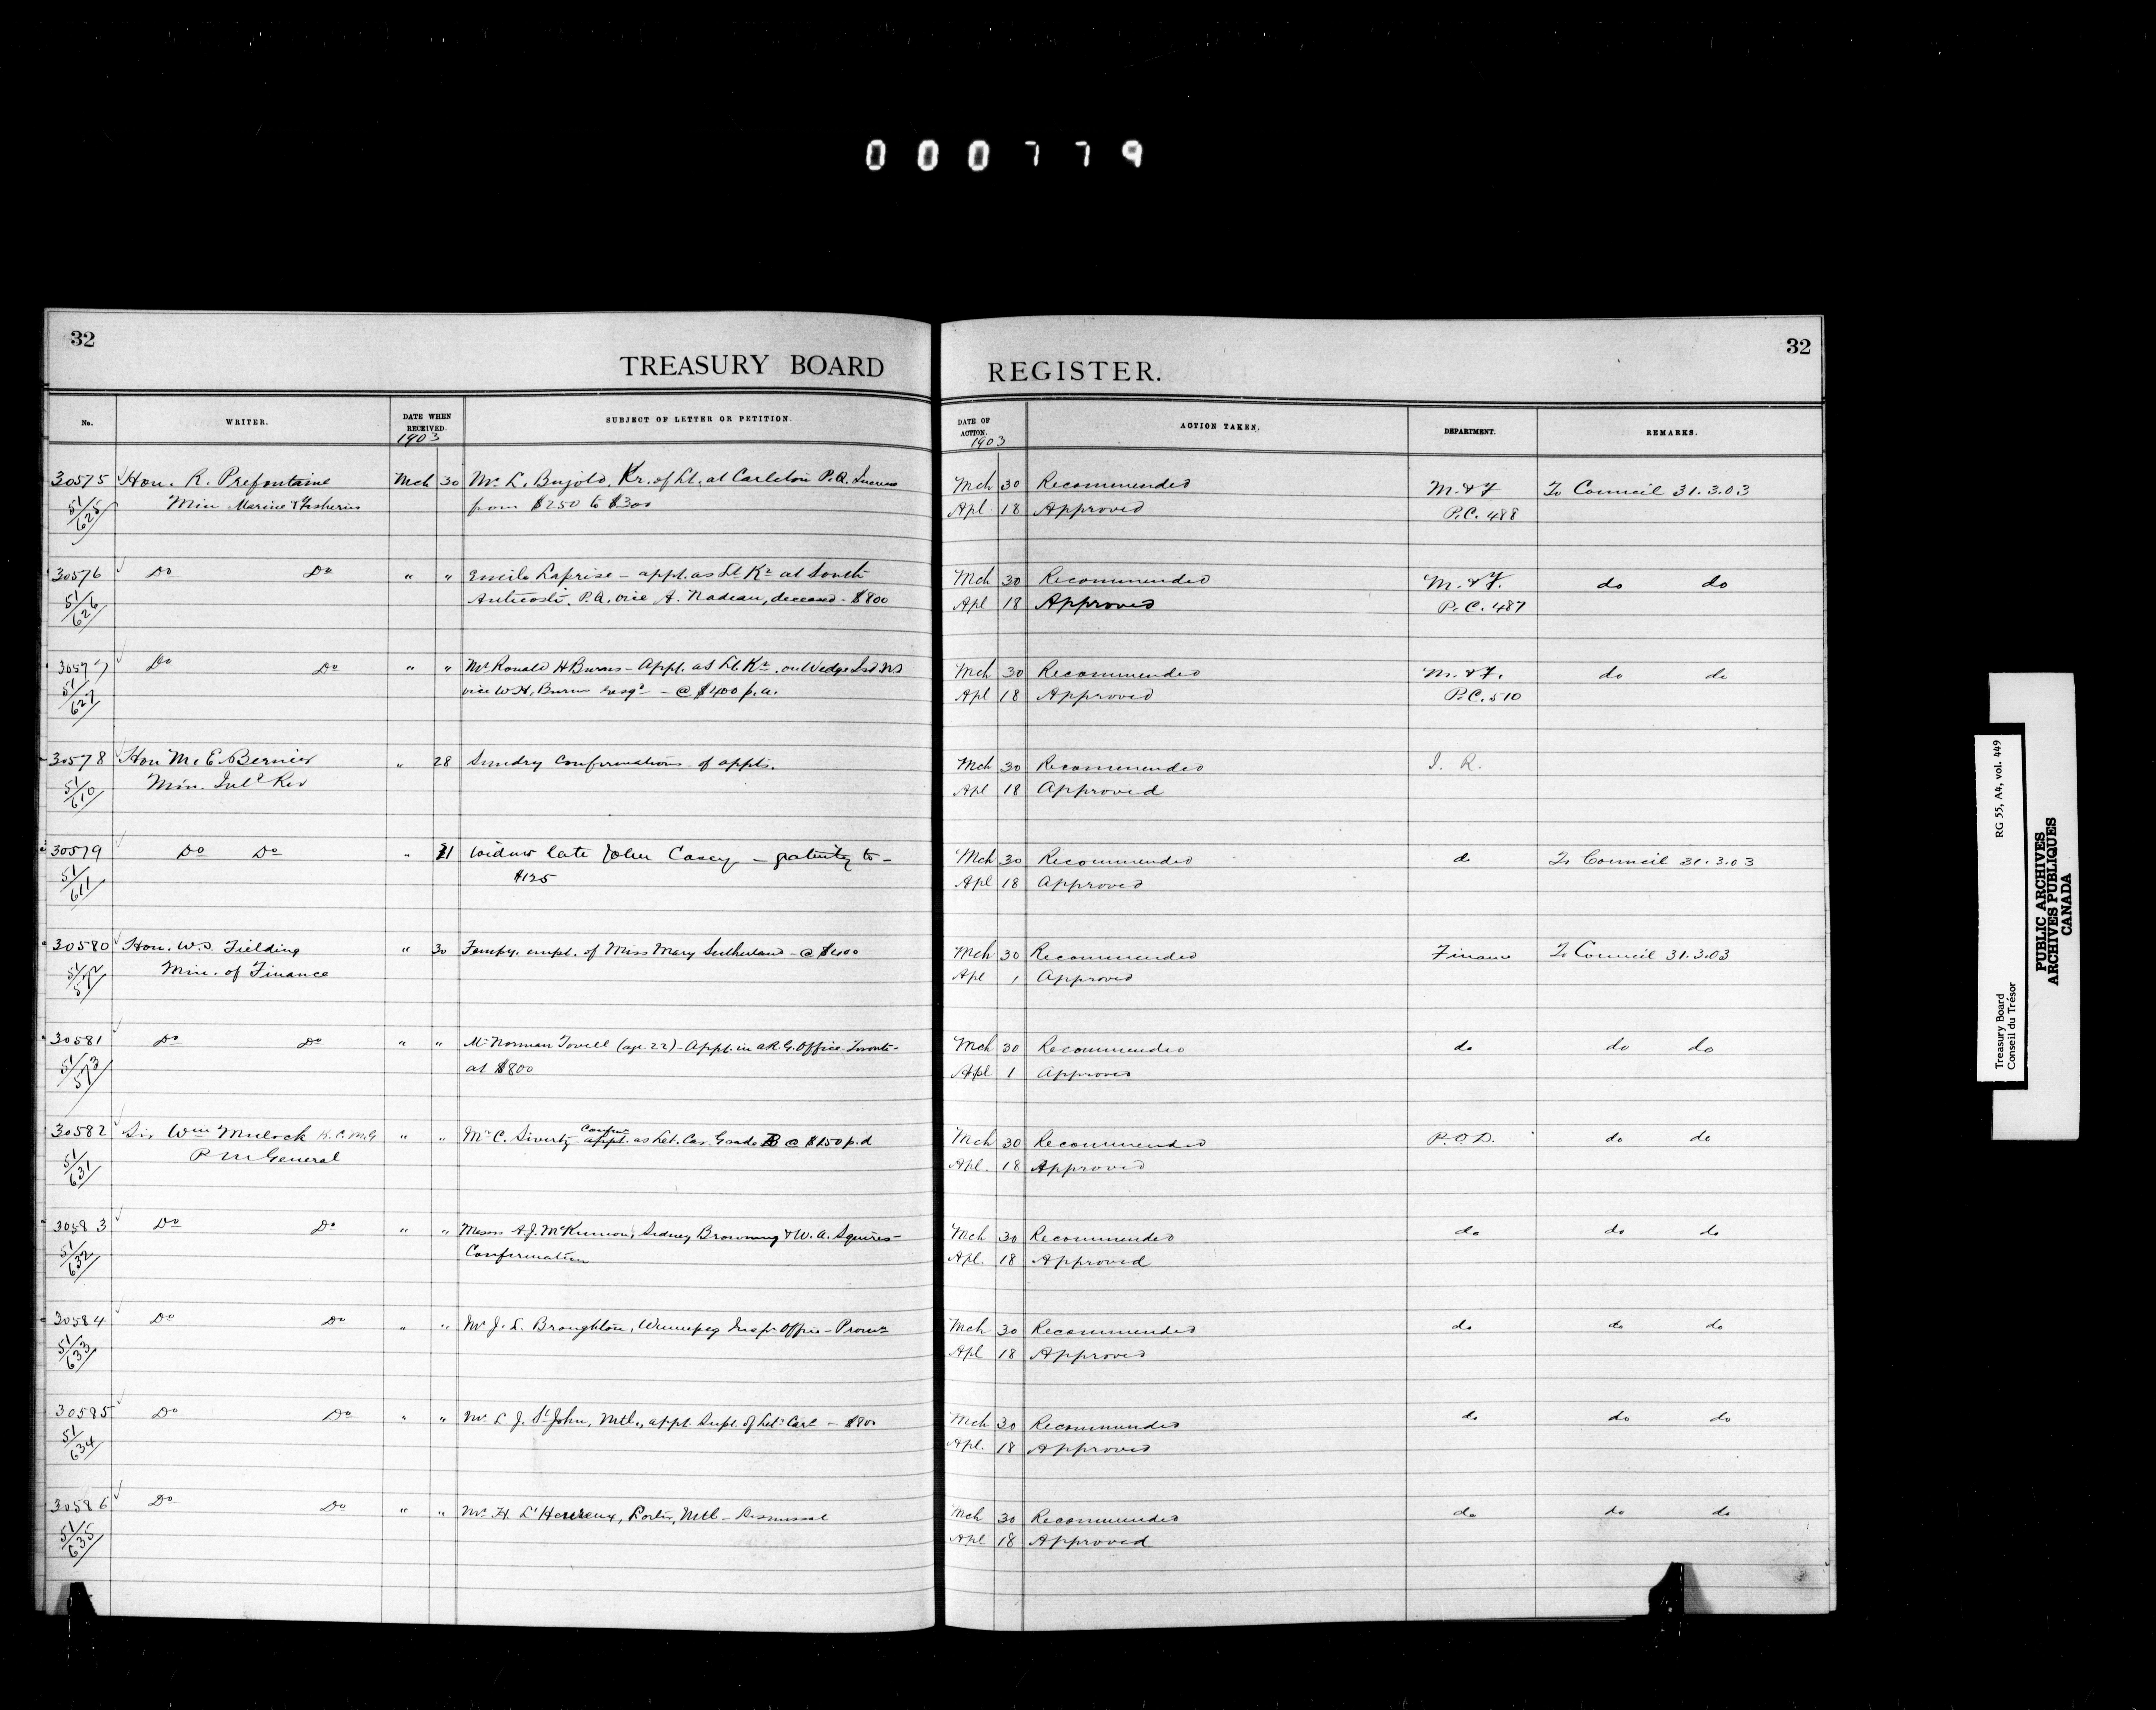 000779
32
TREASURY BOARD REGISTER.
32
No. WRITER. DATE WHEN RECEIVED. SUBJECT OF LETTER OR PETITION. DATE OF ACTION. ACTION TAKEN. DEPARTMENT. REMARKS.
1903 1903
30575 Hon. R. Prefontaine Mch 30 Mr. L. Bujold, Kr. of Lt. at Carleton P.Q. Increase Mch 30 Recommended M. & F To Council 31.3.03
51/625 Min Marine & Fisheries from $250 to $300 Apl. 18 Approved P.C. 488
30576 Do Do " " Emile Laprise - appt. as Lt. Kr at South Mch 30 Recommended M. & F. do do
51/626 Anticosti, P.Q. vice A. Nadeau, deceased - $800 Apl 18 Approved P.C. 487
30577 Do Do " " Mr Ronald H Burns - Appt. as Lt. Kr. on Wedge Isd N.S Mch 30 Recommended M. & F. do do
51/627 vice W.H. Burns resgd - @ $400 p.a. Apl 18 Approved P.C. 510
30578 Hon M. E. Bernier " 28 Sundry Confirmations of appts. Mch 30 Recommended I. R.
51/610 Min. Inld Rev Apl 18 Approved
30579 Do Do " 21 Widow late John Casey - gratuity to - Mch 30 Recommended do To Council 31.3.03
51/611 $125 Apl 18 Approved
30580 Hon. W.S. Fielding " 30 Tempy. empt. of Miss Mary Sutherland - @ $400 Mch 30 Recommended Finance To Council 31.3.03
51/572 Min. of Finance Apl 1 Approved
30581 Do Do " " Mr Norman Tovell (age 22) - Appt. in A.R.G. Office Toronto - Mch 30 Recommended do do do
51/573 at $800 Apl 1 Approved
30582 Sir Wm Mulock K.C.M.G " " Mr C. Siverty - Confn appt. as Let. Car. Grade B @ $1.50 p.d Mch 30 Recommended P.O.D. do do
51/631 P M General Apl. 18 Approved
30583 Do Do " " Messrs A.J. McKinnon, Sidney Browning & W. A. Squires - Mch 30 Recommended do do do
51/632 Confirmation Apl. 18 Approved
30584 Do Do " " Mr J. L. Broughton, Winnipeg Insp. Office - Promn Mch 30 Recommended do do do
51/633 Apl 18 Approved
30585 Do Do " " Mr. L J. St John, Mtl., appt. Supt. of Let. Carr - $800 Mch 30 Recommended do do do
51/634 Apl. 18 Approved
30586 Do Do " " Mr H. L'Heureux, Porter, Mtl - Dismissal Mch 30 Recommended do do do
51/635 Apl 18 Approved
Treasury Board RG 55, A4, vol. 449
Conseil du Trésor
PUBLIC ARCHIVES
ARCHIVES PUBLIQUES
CANADA